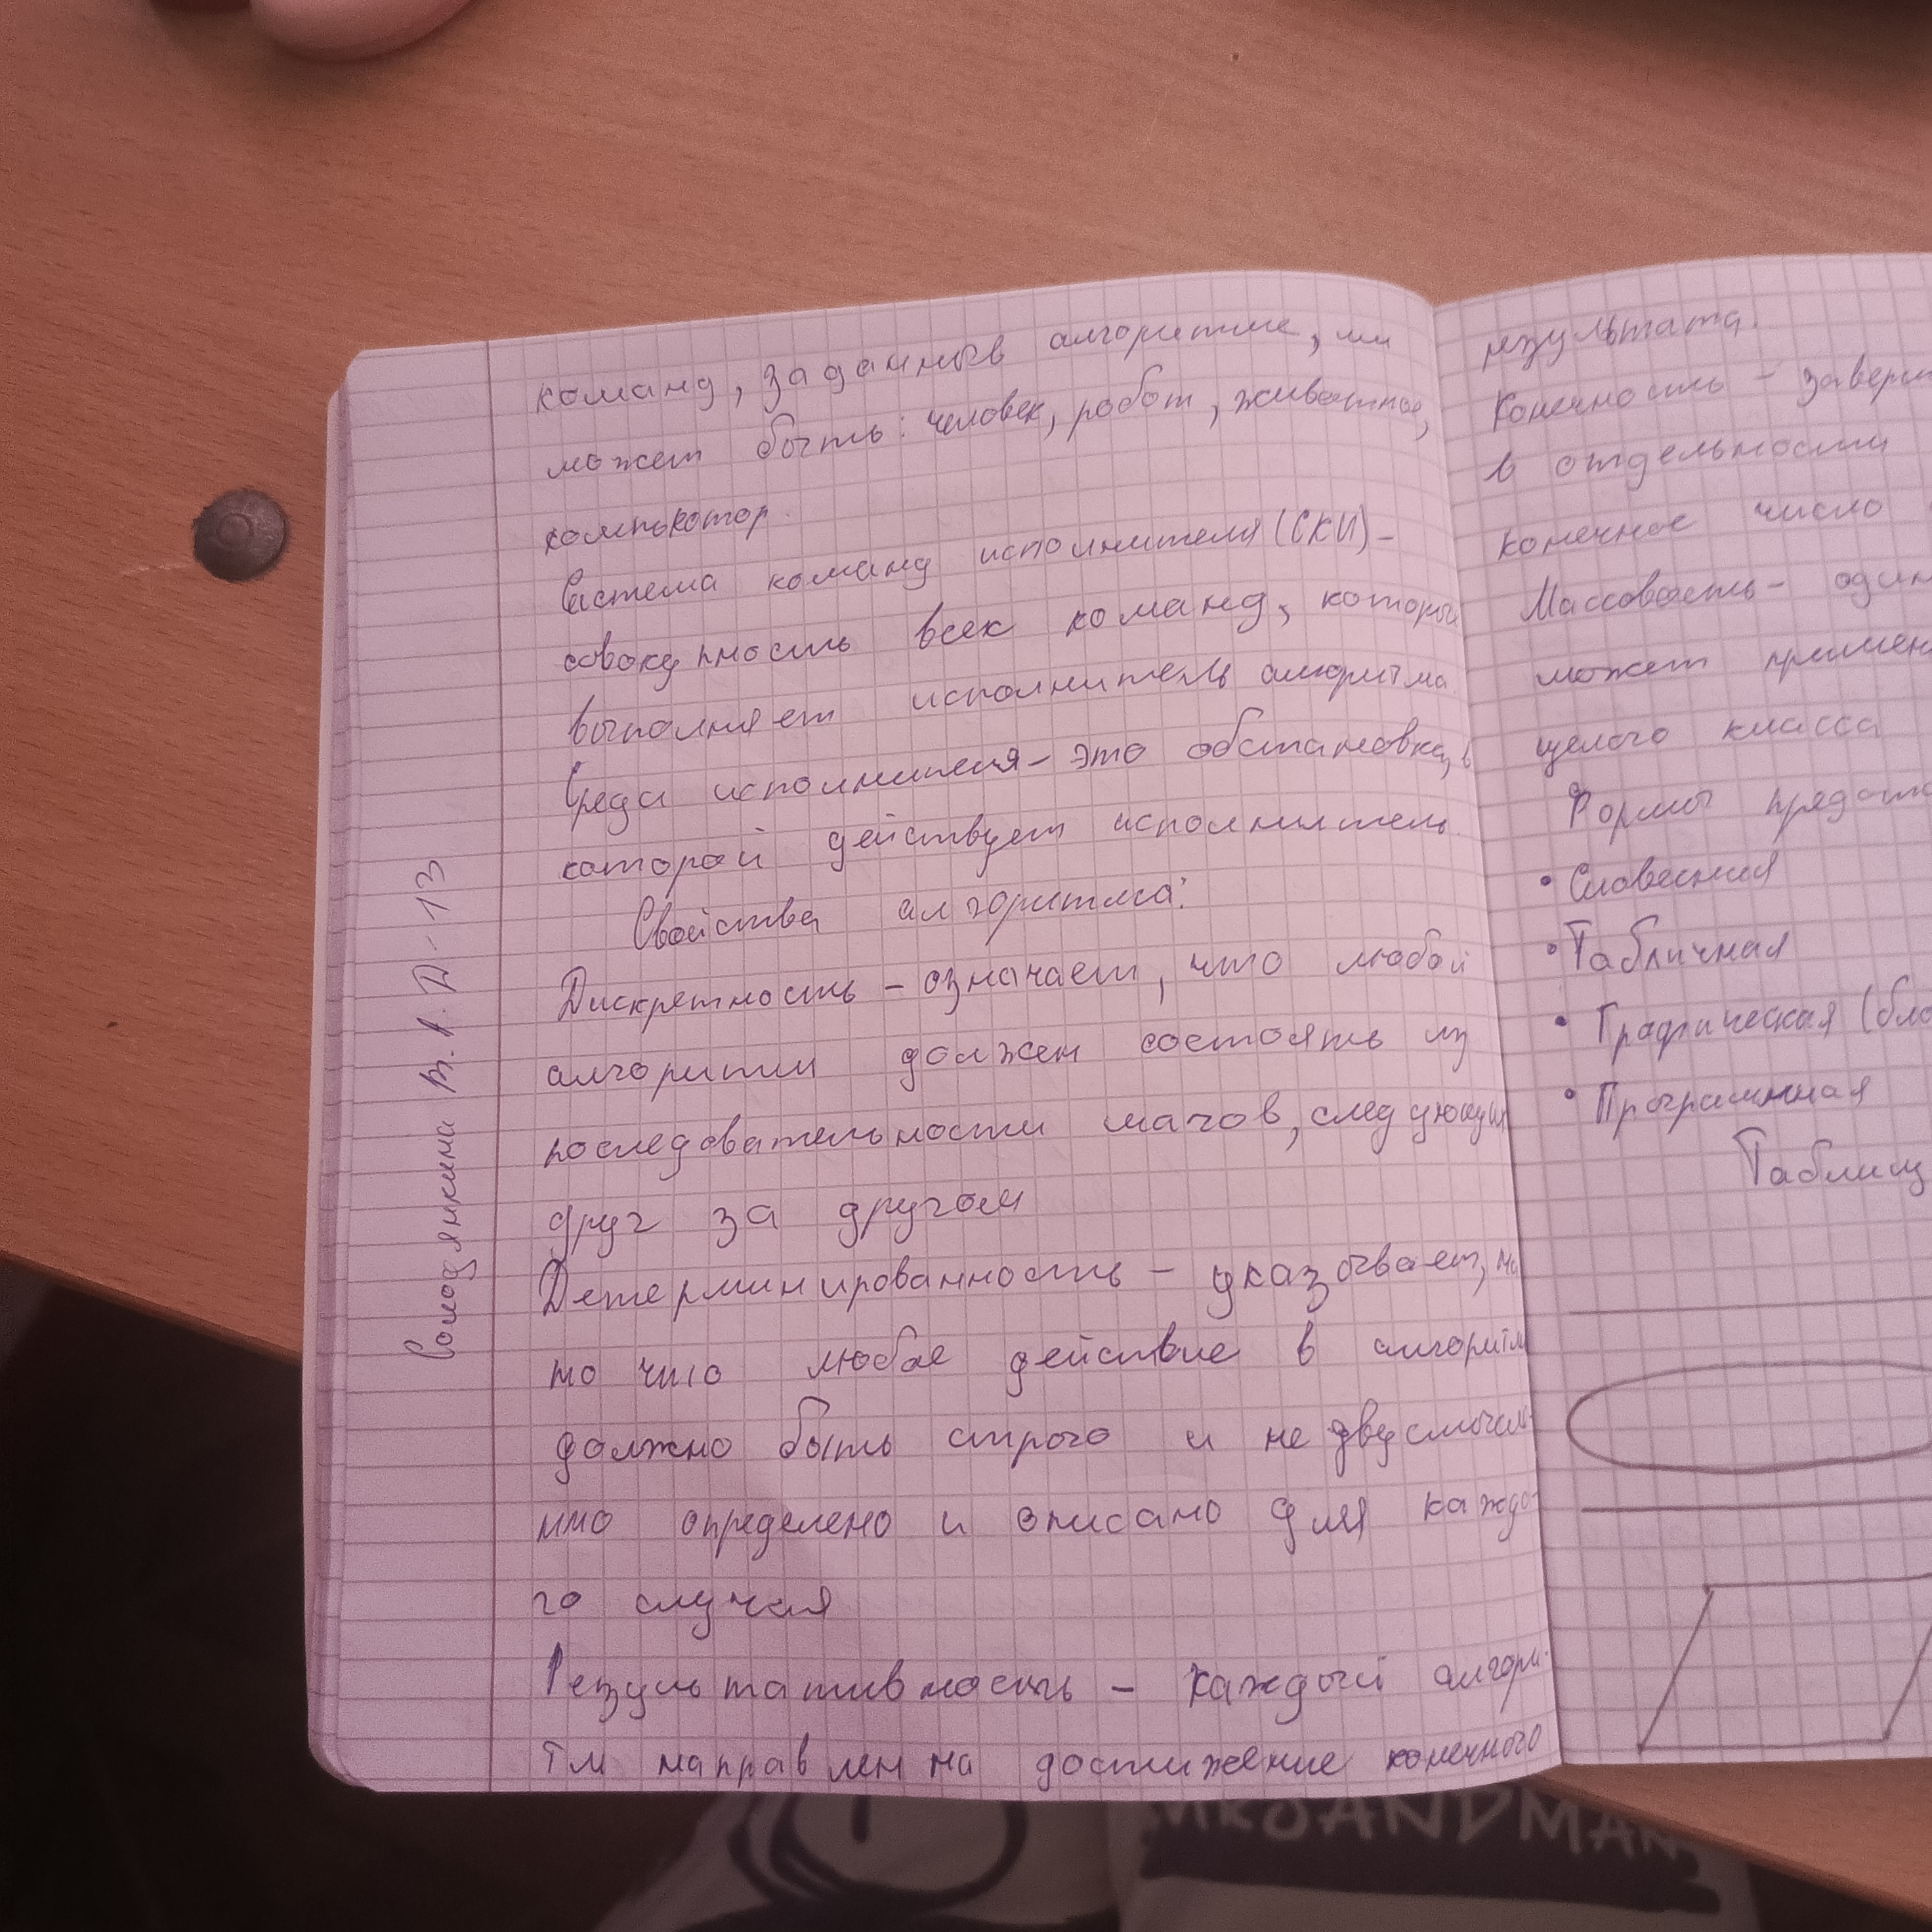 команд, заданных в алгоритме, им
может быть: человек, робот, животное,
компьютор.
Система команд исполнителя (СКИ) –
совокупность всех команд, которые
выполняет исполнитель алгоритма.
Среда исполнителя – это обстановка, в
которой действует исполнитель.
Свойства алгоритма:
Дискретность – означает, что любой
алгоритм должен состоять из
последовательности шагов, следующих
друг за другом
Детерминированность – указывает, на
то что любое действие в алгоритм
должно быть строго и не двусмыслен-
но определено и описано для каждо-
го случая
Результативность – каждый алгори-
тм направлен на достижение конечного
Д-13
результата.
Конечность – заверш
в отдельности
конечное число
Массовость – один
может примен
целого класса
Формы предста
• Словесная
• Табличная
• Графическая (бло
• Программная
Таблиц